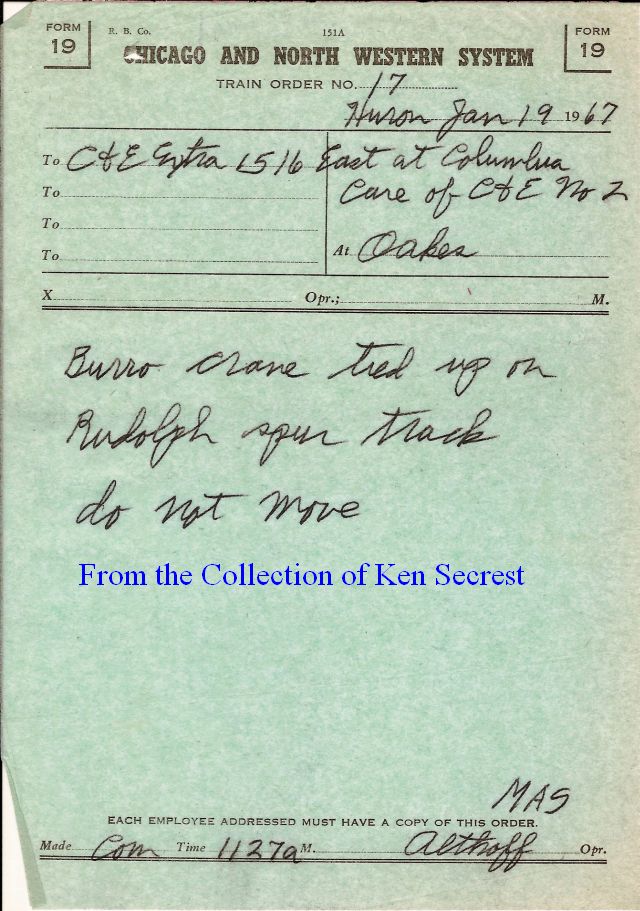 FORM 19
R. B. Co. 151A
FORM 19
CHICAGO AND NORTH WESTERN SYSTEM
TRAIN ORDER NO. 17
Huron Jan 19 1967
To C&E Extra 1516 East at Columbia
To Care of C&E No 2
To
To At Oakes
X Opr.; M.
Burro crane tied up on
Rudolph spur track
do not move
From the Collection of Ken Secrest
MAS
EACH EMPLOYEE ADDRESSED MUST HAVE A COPY OF THIS ORDER.
Made Com Time 1127a M. Althoff Opr.